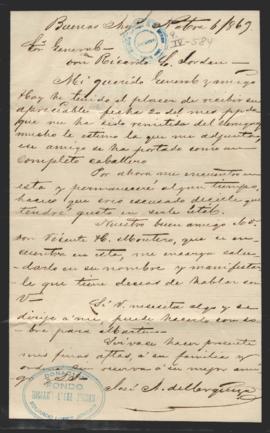 Buenos Ays Nobre 6/869
Sor General
Don Ricardo L. Jordan
Mi querido General y amigo
Hoy he tenido el placer de recibir su
apreciable fecha 20 del mes
que me ha sido remitida del
mucho le estimo la que me adjunta,
ese amigo se ha portado como un
completo caballero
Por ahora me encuentro en
esta y permaneceré algun tiempo,
creo escusado decirle que
tendré gusto en serle util.
Nuestro buen amigo el
Don Vicente H. Montero, que se en-
cuentra en esta, me encarga salu-
darlo en su nombre y manifestar-
le que tiene deseos de hablar con
V.
Si V. necesita algo y se
dirije a mi, puede hacerlo con so-
bre para Martin
Sirvase hacer presente
mis finas aftas. a su familia y
ordene en reserva a su mejor ami-
go
José A. de
DONACION
FONDO